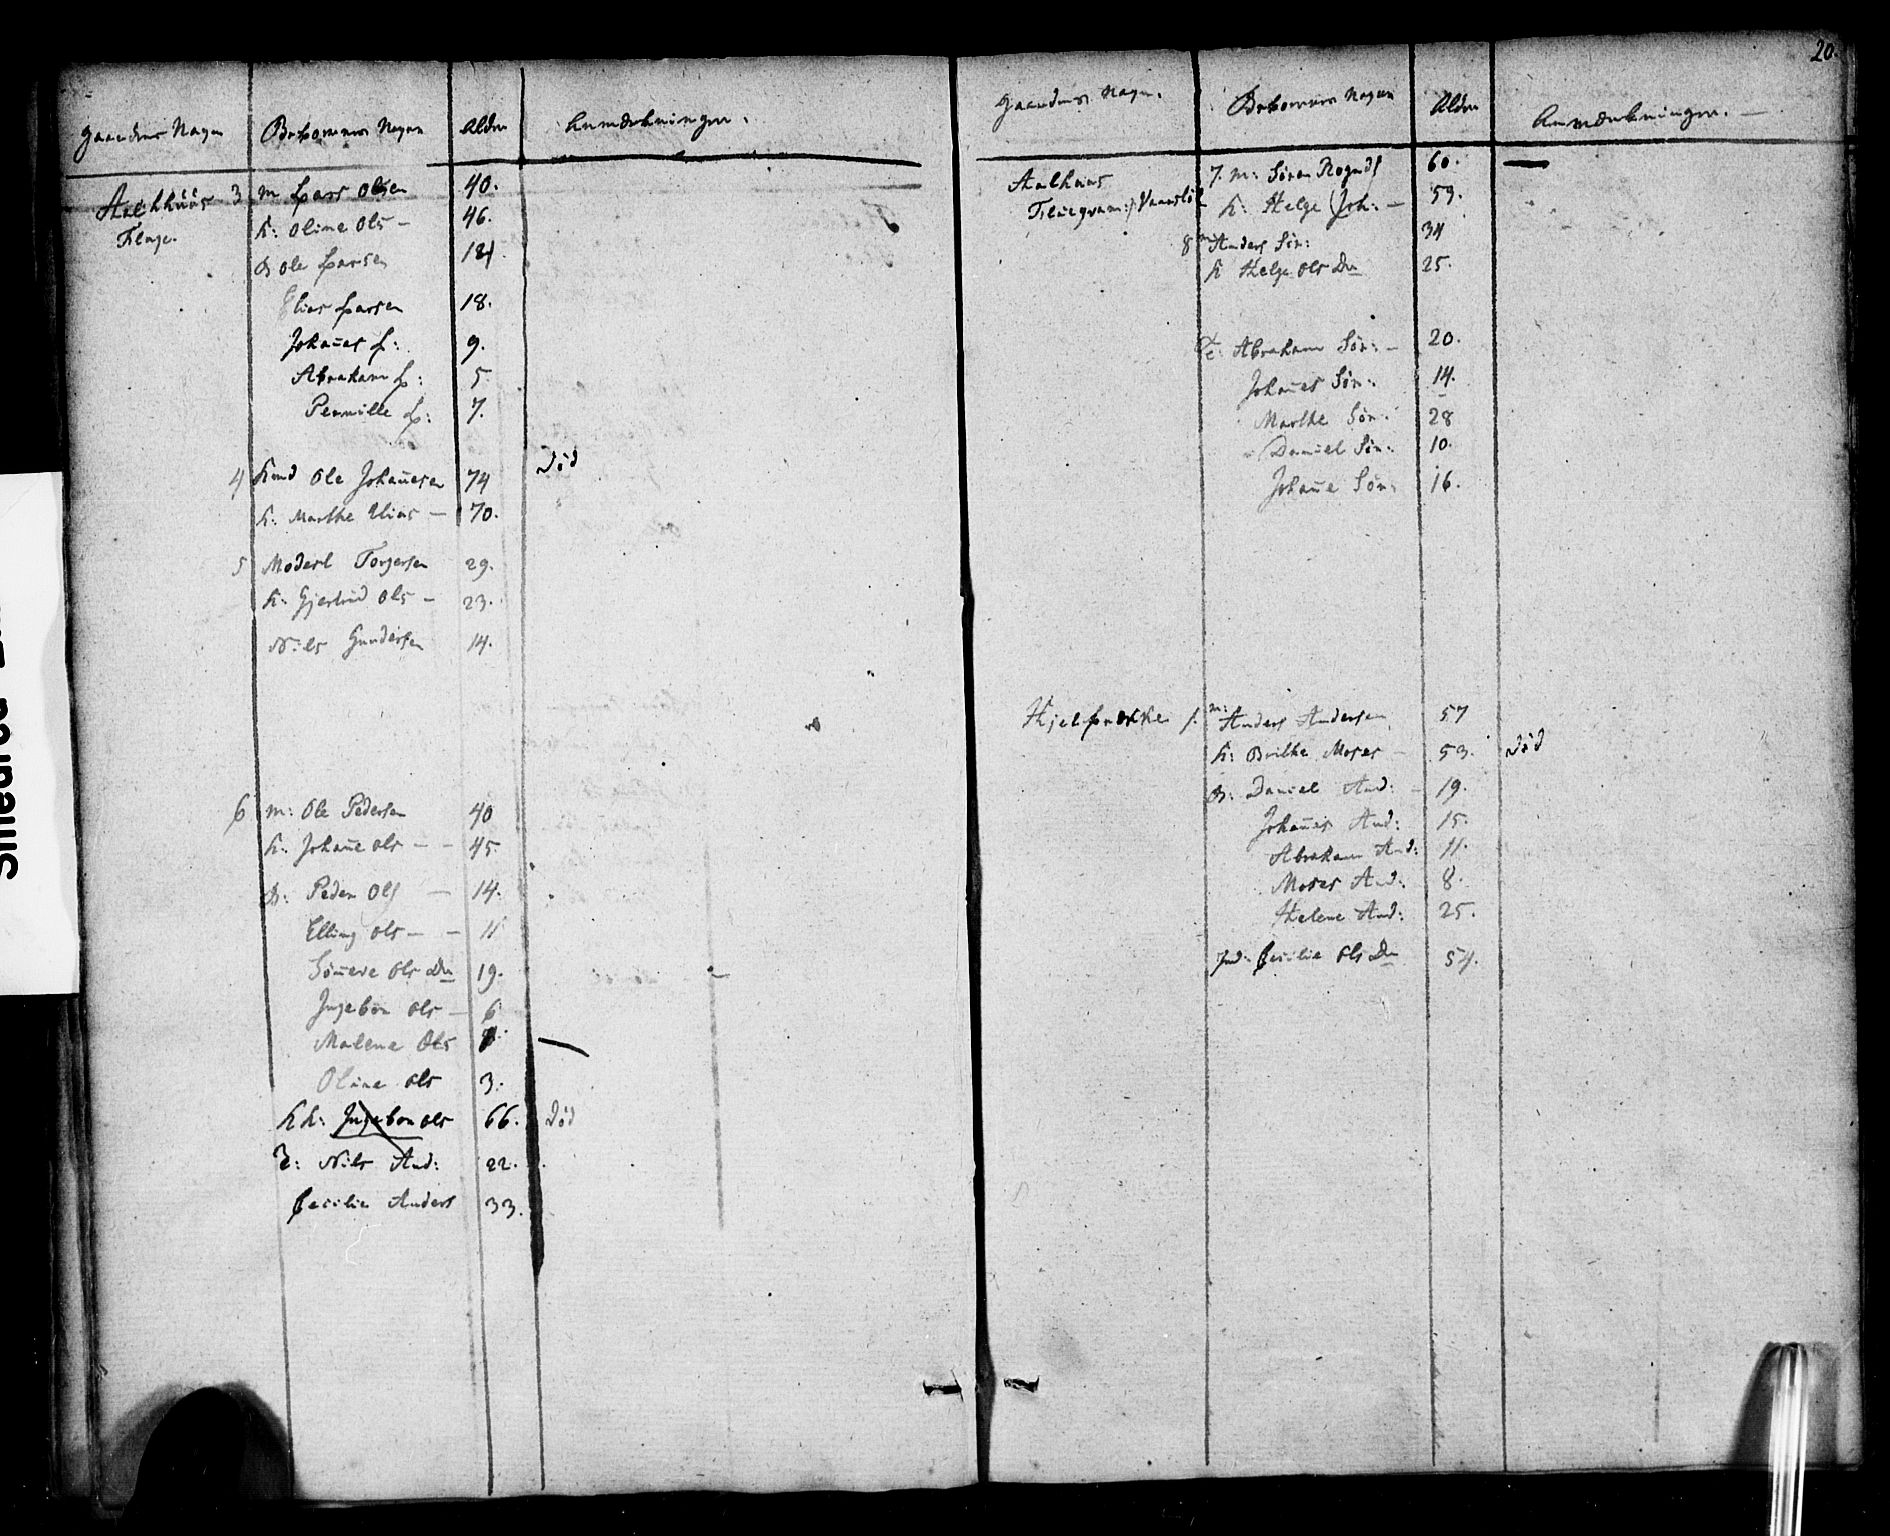 Gaardens Nagn Beboernes Nagen Alder Anmærkninger.
Aalhhuus 3 m Lars Olsen 40.
Tilage. K: Oline Ols - 46.
B Ole Larsen 121.
Elias Larsen 18.
Johañes L: 9.
Abraham L: 5
Pernille L: 7.
4 Knud Ole Johañesen 74 Død
K: Marthe Elias - 70.
5 Moderl Torgersen 29.
K: Gjertrud Ols - 23.
Nils Gundersen 14.
6 m: Ole Pedersen 40
K: Johañe Ols - - 45
B: Peder Ols - 14.
Elling Ols - - 11
Söneve Ols Dr 19.
Ingebor Ols - 6
Malene Ols —
Oline Ols 3.
KK: Ingebor Ols 66. Død
T: Nils And: 22.
Cecilie Anders 33.
20.
Gaardens Nagn. Beboernes Nagen Alder Anmærkninger. —
Aalhuus 7. m: Sören Rognds 60. —
K: Helge Joh: - 59.
8 m Anders Sör: 34
K Helge Ols Dr 25.
T: Abraham Sör: - 20.
Johañes Sör: 14.
Marthe Sör: 28
Daniel Sör: 10.
Johañe Sör: 16.
1. m: Anders Andersen 57
K: Brithe Moses - 53. Død
B: Daniel And: - 19.
Johañes And: 15.
Abraham And: 11.
Moses And: 8.
Helene And: 25.
Ind: Cecilie Ols Dr 54.